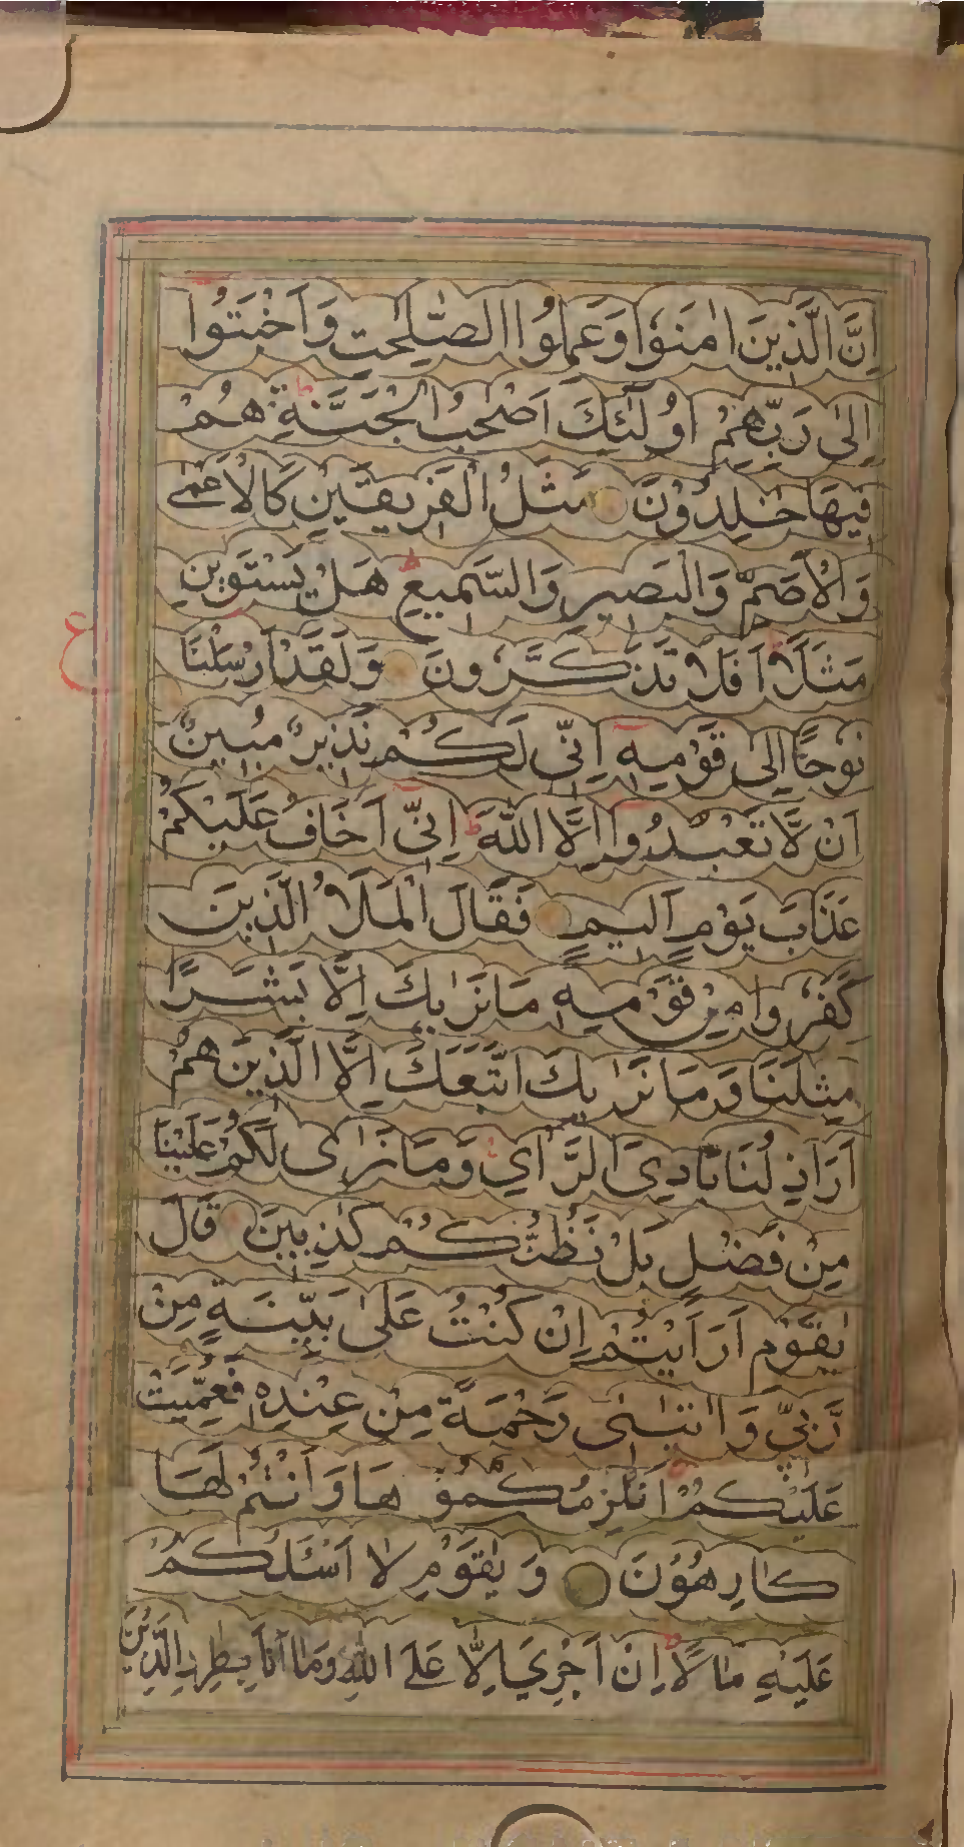 اِنَّ الَّذِيْنَ اٰمَنُوْا وَعَمِلُوا الصّٰلِحٰتِ وَاَخْبَتُوْا
اِلٰى رَبِّهِمْ اُولٰٓئِكَ اَصْحٰبُ الْجَنَّةِ هُمْ
فِيْهَا خٰلِدُوْنَ مَثَلُ الْفَرِيْقَيْنِ كَالْاَعْمٰى
وَالْاَصَمِّ وَالْبَصِيْرِ وَالسَّمِيْعِ هَلْ يَسْتَوِيٰنِ
مَثَلًا اَفَلَا تَذَكَّرُوْنَ وَلَقَدْ اَرْسَلْنَا
ع
نُوْحًا اِلٰى قَوْمِهٖ اِنِّيْ لَكُمْ نَذِيْرٌ مُّبِيْنٌ
اَنْ لَّا تَعْبُدُوْا اِلَّا اللّٰهَ ط اِنِّيْ اَخَافُ عَلَيْكُمْ
عَذَابَ يَوْمٍ اَلِيْمٍ فَقَالَ الْمَلَاُ الَّذِيْنَ
كَفَرُوْا مِنْ قَوْمِهٖ مَا نَرٰىكَ اِلَّا بَشَرًا
مِّثْلَنَا وَمَا نَرٰىكَ اتَّبَعَكَ اِلَّا الَّذِيْنَ هُمْ
اَرَاذِلُنَا بَادِيَ الرَّاْيِ وَمَا نَرٰى لَكُمْ عَلَيْنَا
مِنْ فَضْلٍ بَلْ نَظُنُّكُمْ كٰذِبِيْنَ قَالَ
يٰقَوْمِ اَرَاَيْتُمْ اِنْ كُنْتُ عَلٰى بَيِّنَةٍ مِّنْ
رَّبِّيْ وَاٰتٰىنِيْ رَحْمَةً مِّنْ عِنْدِهٖ فَعُمِّيَتْ
عَلَيْكُمْ اَنُلْزِمُكُمُوْهَا وَاَنْتُمْ لَهَا
كَارِهُوْنَ وَيٰقَوْمِ لَا اَسْئَلُكُمْ
عَلَيْهِ مَالًا اِنْ اَجْرِيَ اِلَّا عَلَى اللّٰهِ وَمَا اَنَا بِطَارِدِ الَّذِيْنَ